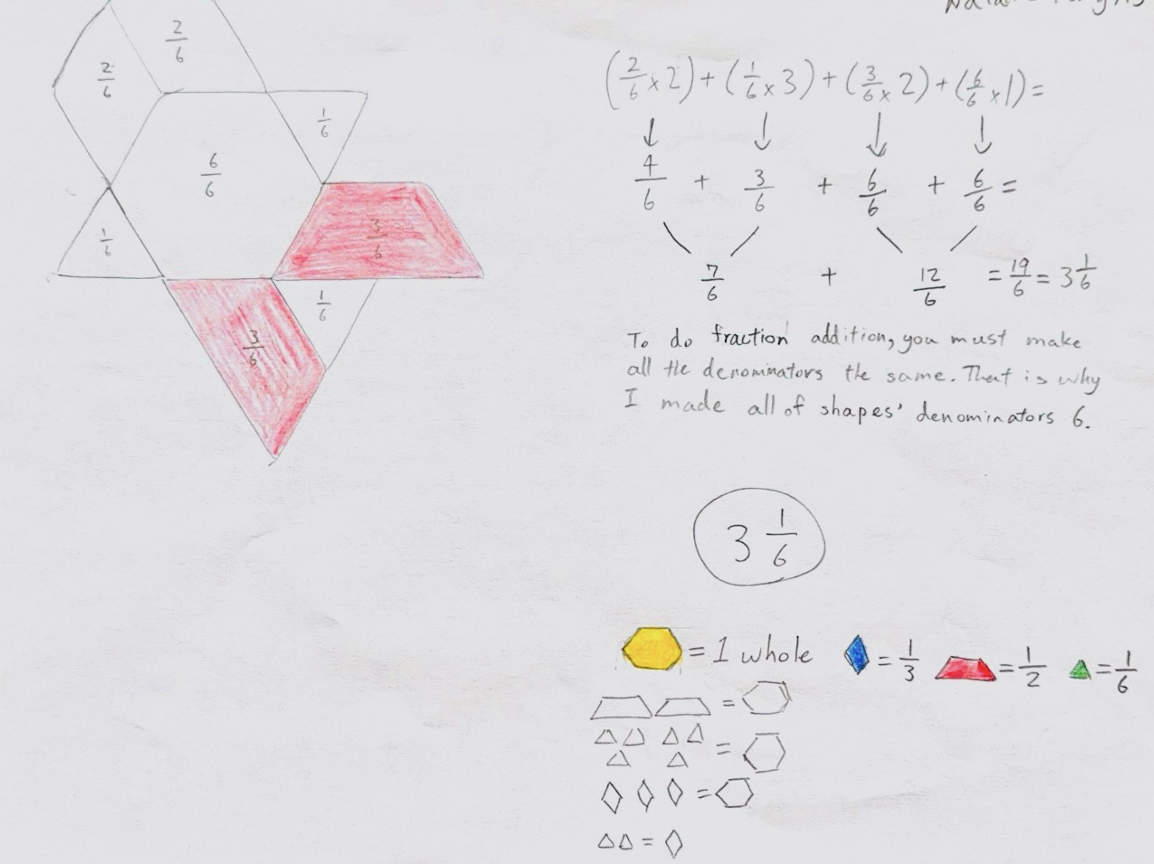 2/6
2/6
1/6
6/6
3/6
1/6
1/6
3/6
(2/6 x 2) + (1/6 x 3) + (3/6 x 2) + (6/6 x 1) =
4/6 + 3/6 + 6/6 + 6/6 =
7/6 + 12/6 = 19/6 = 3 1/6
To do fraction addition, you must make
all the denominators the same. That is why
I made all of shapes' denominators 6.
3 1/6
= 1 whole = 1/3 = 1/2 = 1/6
=
=
=
=